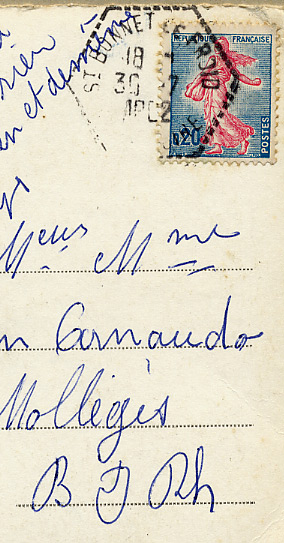 rien
en et de même
ST BONNET
18
30 -7
1962
RÉPUBLIQUE FRANÇAISE
0,20
POSTES
Meus Mme
n Carnaudo
Mollégès
B D Rh